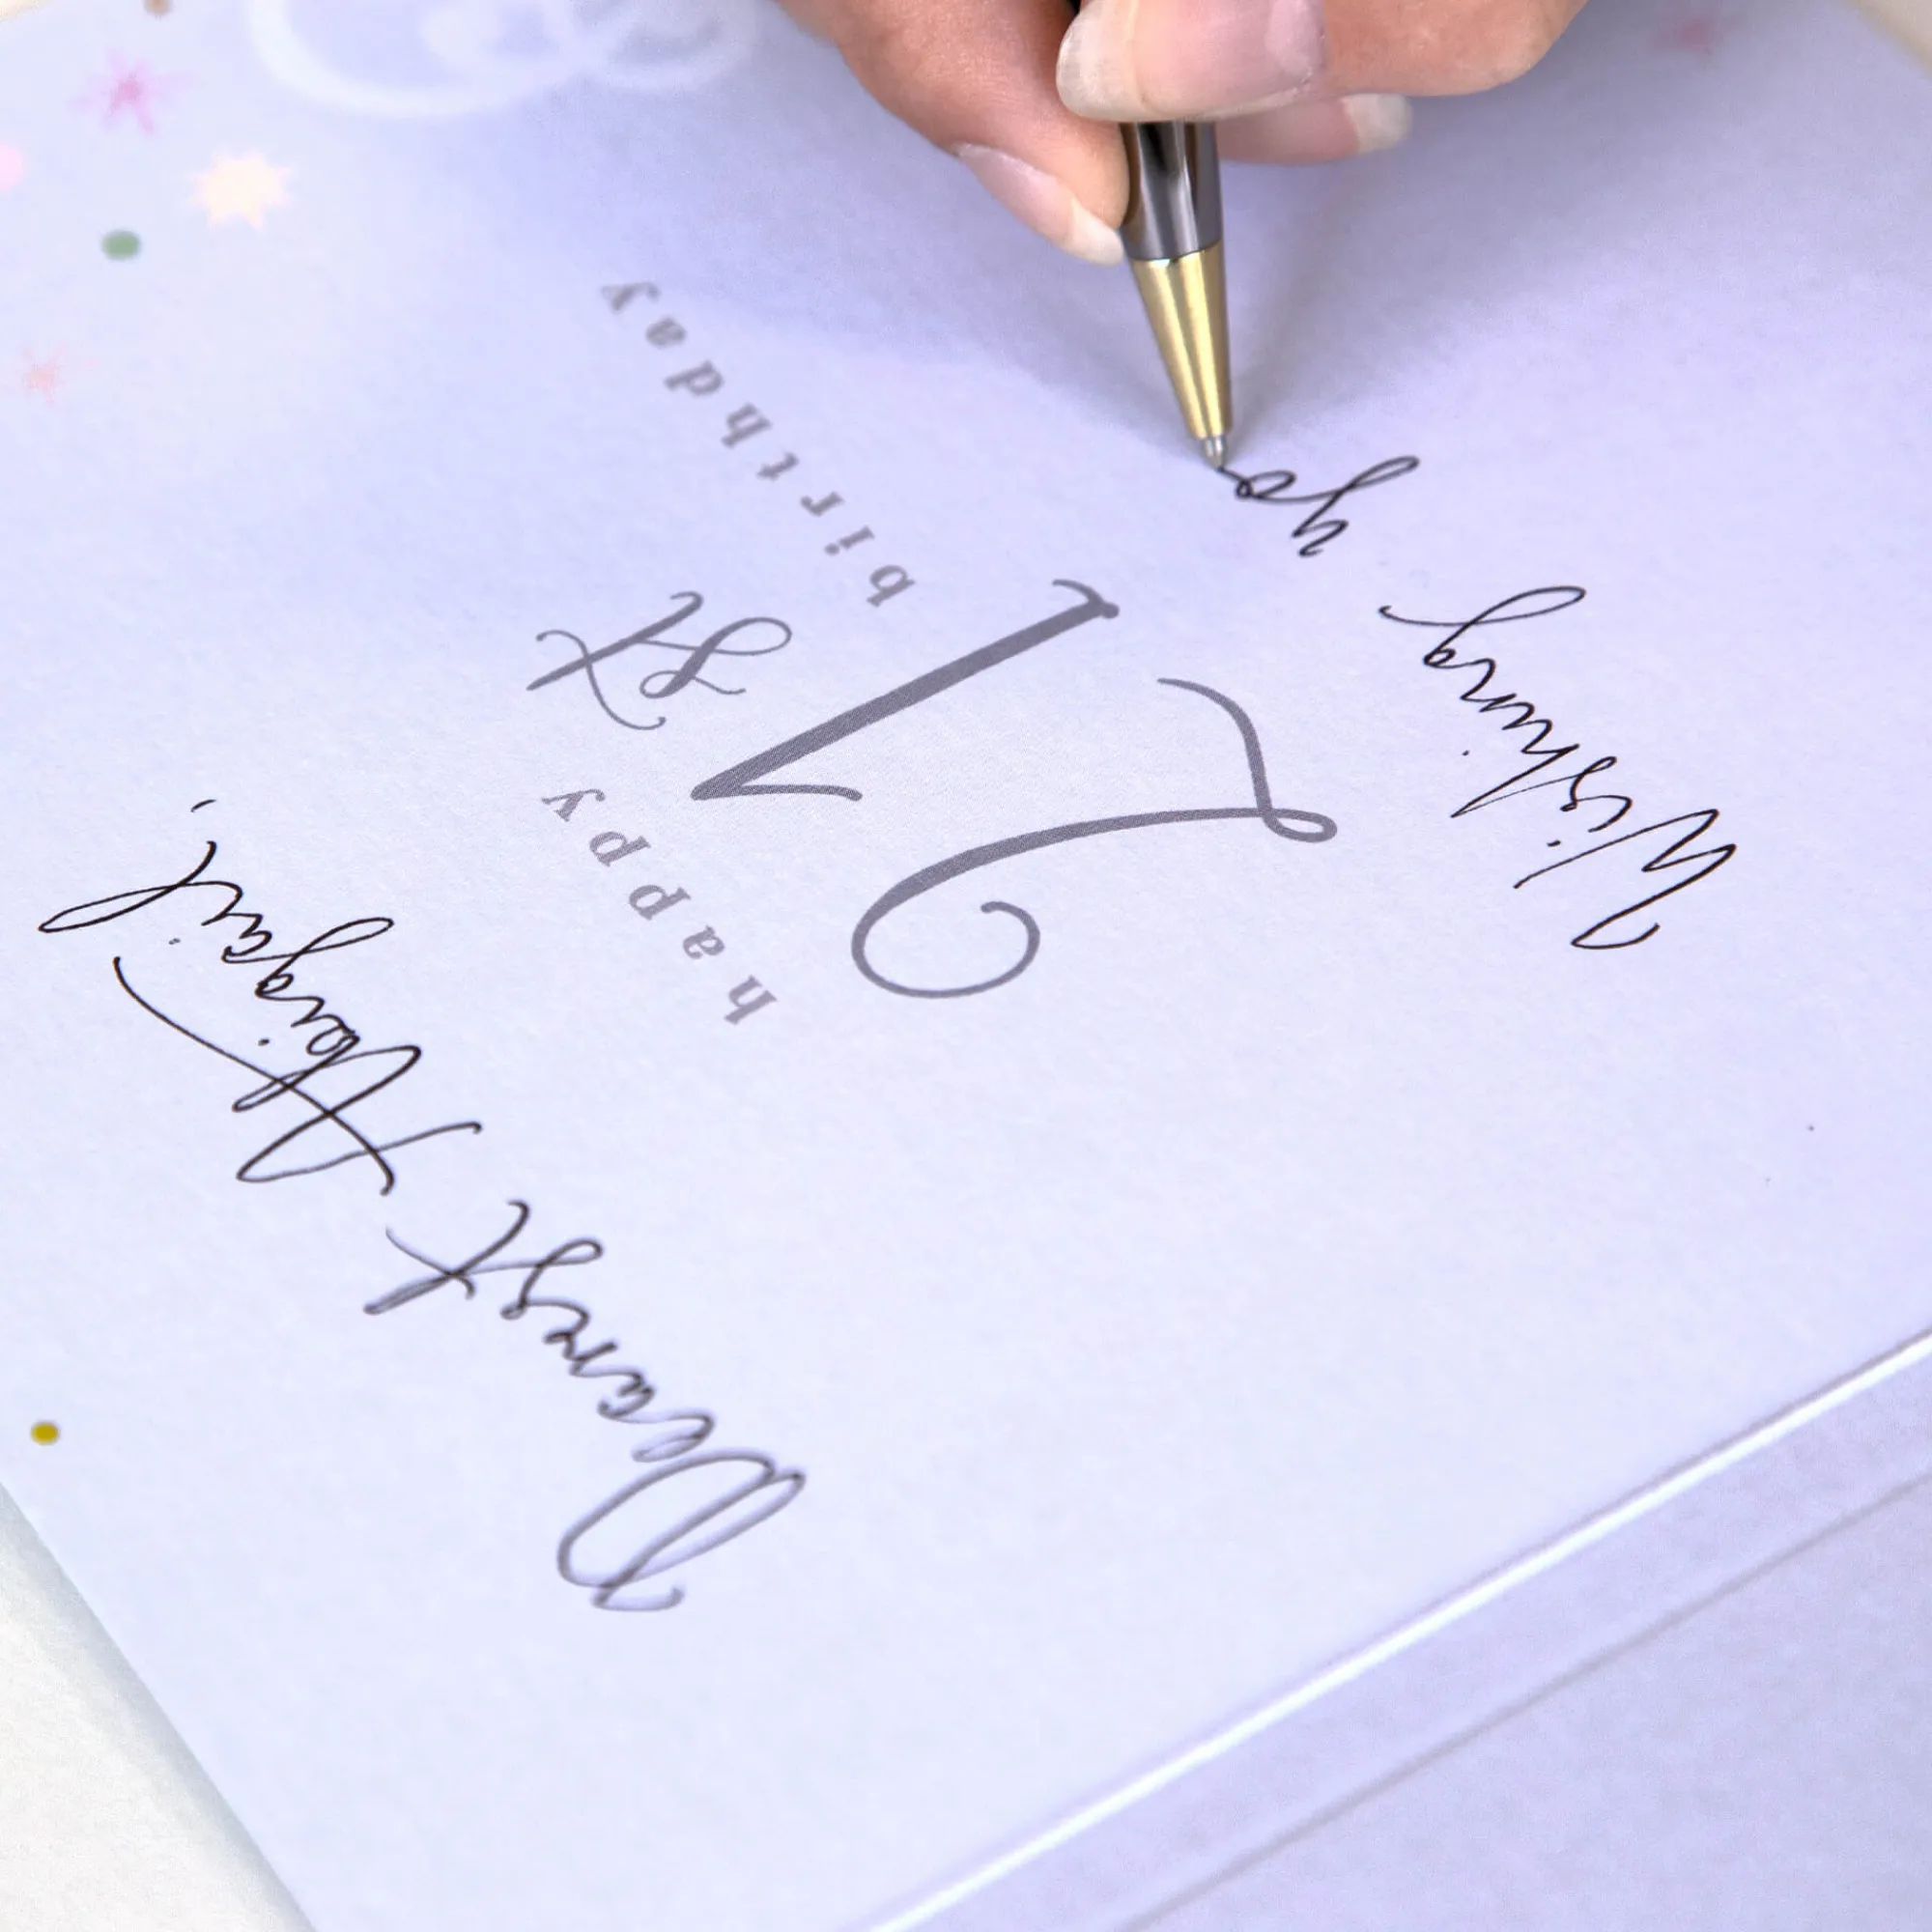 Dearest Abigail,
happy
21st
birthday
Wishing yo